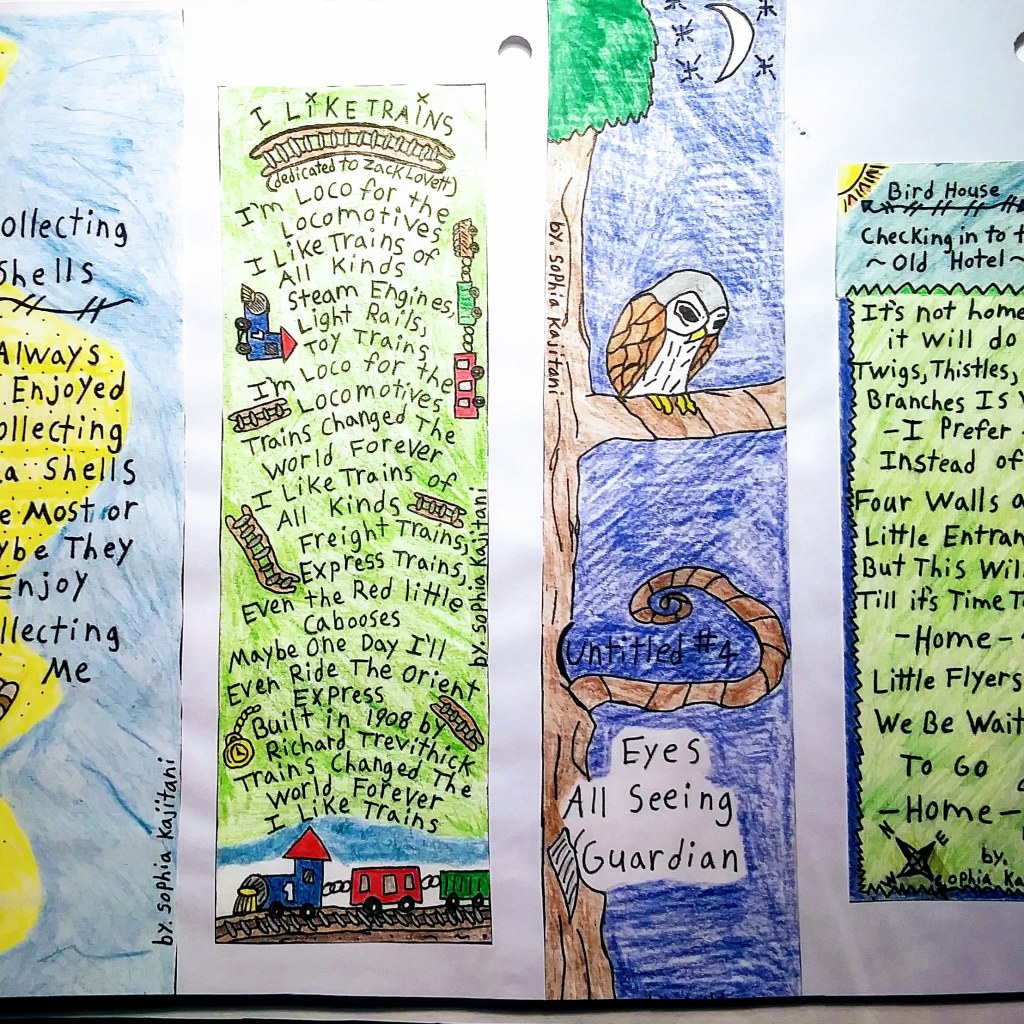 ollecting
Shells
Always
Enjoyed
ollecting
a Shells
e Most or
ybe They
Enjoy
llecting
Me
by. Sophia Kajitani
I LiKE TRAiNS
(dedicated to Zack Lovett)
I'm Loco for the
Locomotives
I Like Trains of
All Kinds
Steam Engines,
Light Rails,
Toy Trains
I'm Loco for the
Locomotives
Trains Changed The
World Forever
I Like Trains of
All Kinds
Freight Trains,
Express Trains,
Even the Red little
Cabooses
Maybe One Day I'll
Even Ride The Orient
Express
Built in 1908 by
Richard Trevithick
Trains Changed The
World Forever
I Like Trains
1
by. Sophia Kajitani
by. Sophia Kajitani
Untitled #4
Eyes
All Seeing
Guardian
Bird House
Checking in to t
~ Old Hotel ~
It's not home
it will do
Twigs, Thistles,
Branches Is
- I Prefer -
Instead of
Four Walls a
Little Entran
But This Will
Till it's Time T
- Home -
Little Flyers
We Be Wait
To Go
- Home -
N
E
by.
Sophia Ka